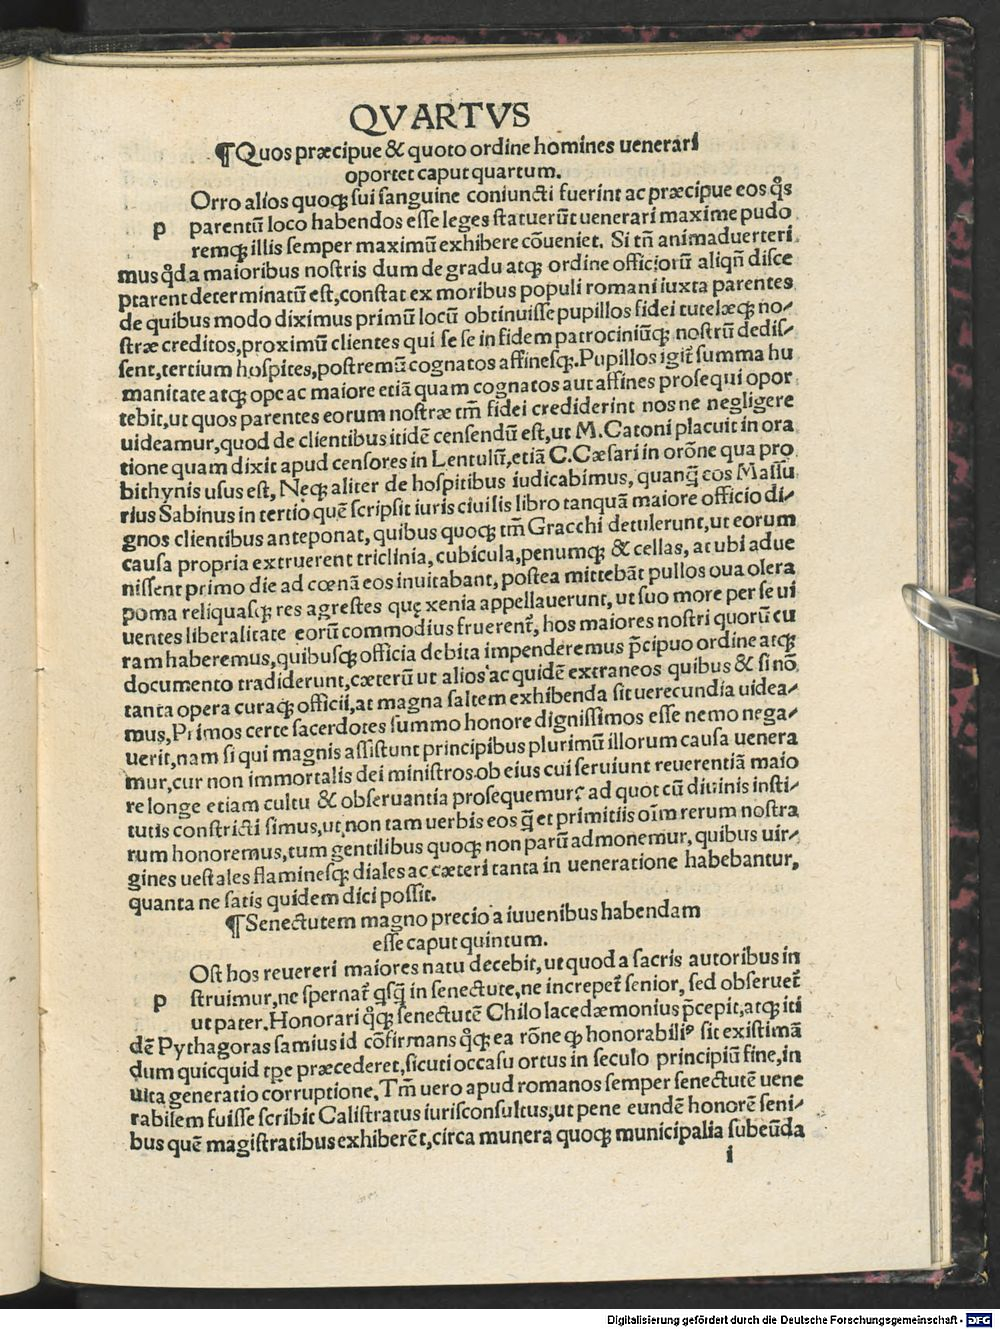 QVARTVS
¶Quos præcipue & quoto ordine homines uenerari
oportet caput quartum.
Orro alios quoqꝫ sui sanguine coniuncti fuerint ac præcipue eos q̊s
p parentū loco habendos esse leges statuerūt uenerari maxime pudo
remqꝫ illis semper maximū exhibere cōueniet. Si tñ animaduerteri
mus q̊d a maioribus nostris dum de gradu atqꝫ ordine officiorū aliqñ disce
ptarent determinatū est, constat ex moribus populi romani iuxta parentes
de quibus modo diximus primū locū obtinuisse pupillos fidei tutelæqꝫ no⸗
stræ creditos, proximū clientes qui se se in fidem patrociniūqꝫ nostrū dedis⸗
sent, tertium hospites, postremū cognatos affinesqꝫ. Pupillos igit̃ summa hu
manitate atqꝫ ope ac maiore etiā quam cognatos aut affines prosequi opor
tebit, ut quos parentes eorum nostræ tm̄ fidei crediderint nos ne negligere
uideamur, quod de clientibus itidē censendū est, ut M. Catoni placuit in ora
tione quam dixit apud censores in Lentulū, etiā C. Cæsari in orōne qua pro
bithynis usus est, Neqꝫ aliter de hospitibus iudicabimus, quanq̄ eos Massu
rius Sabinus in tertio quē scripsit iuris ciuilis libro tanquā maiore officio di⸗
gnos clientibus anteponat, quibus quoqꝫ tm̄ Gracchi detulerunt, ut eorum
causa propria extruerent triclinia, cubicula, penumqꝫ & cellas, at ubi adue
nissent primo die ad cœnā eos inuitabant, postea mittebāt pullos oua olera
poma reliquasqꝫ res agrestes quę xenia appellauerunt, ut suo more per se ui
uentes liberalitate eorū commodius fruerent̃, hos maiores nostri quorū cu
ram haberemus, quibusqꝫ officia debita impenderemus p̄cipuo ordine atqꝫ
documento tradiderunt, cæterū ut alios ac quidē extraneos quibus & si nō
tanta opera curaqꝫ officii, at magna saltem exhibenda sit uerecundia uidea⸗
mus, Primos certe sacerdotes summo honore dignissimos esse nemo nega⸗
uerit, nam si qui magnis assistunt principibus plurimū illorum causa uenera
mur, cur non immortalis dei ministros ob eius cui seruiunt reuerentiā maio
re longe etiam cultu & obseruantia prosequemur? ad quot cū diuinis insti⸗
tutis constricti simus, ut non tam uerbis eos q̄ et primitiis oīm rerum nostra
rum honoremus, tum gentilibus quoqꝫ non parū admonemur, quibus uir⸗
gines uestales flaminesqꝫ diales ac cæteri tanta in ueneratione habebantur,
quanta ne satis quidem dici possit.
¶Senectutem magno precio a iuuenibus habendam
esse caput quintum.
Ost hos reuereri maiores natu decebit, ut quod a sacris autoribus in
p struimur, ne spernat̃ q̄sq̄ in senectute, ne increpet̃ senior, sed obseruet̃
ut pater. Honorari q̊qꝫ senectutē Chilo lacedæmonius p̄cepit, atqꝫ iti
dē Pythagoras samius id cōfirmans q̊qꝫ ea rōne ꝙ honorabiliꝰ sit existimā
dum quicquid tp̄e præcederet, sicuti occasu ortus in seculo principiū fine, in
uita generatio corruptione. Tm̄ uero apud romanos semper senectutē uene
rabilem fuisse scribit Calistratus iurisconsultus, ut pene eundē honorē seni⸗
bus quē magistratibus exhiberēt, circa munera quoqꝫ municipalia subeūda
i
Digitalisierung gefördert durch die Deutsche Forschungsgemeinschaft - DFG